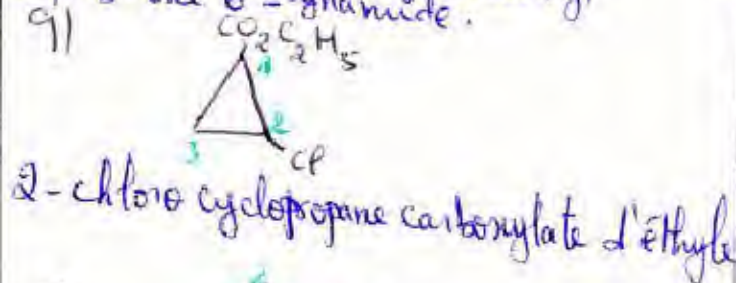 6-ynamide.
9)
CO2C2H5
1
2
3
Cl
2-chloro cyclopropane carboxylate d'éthyle